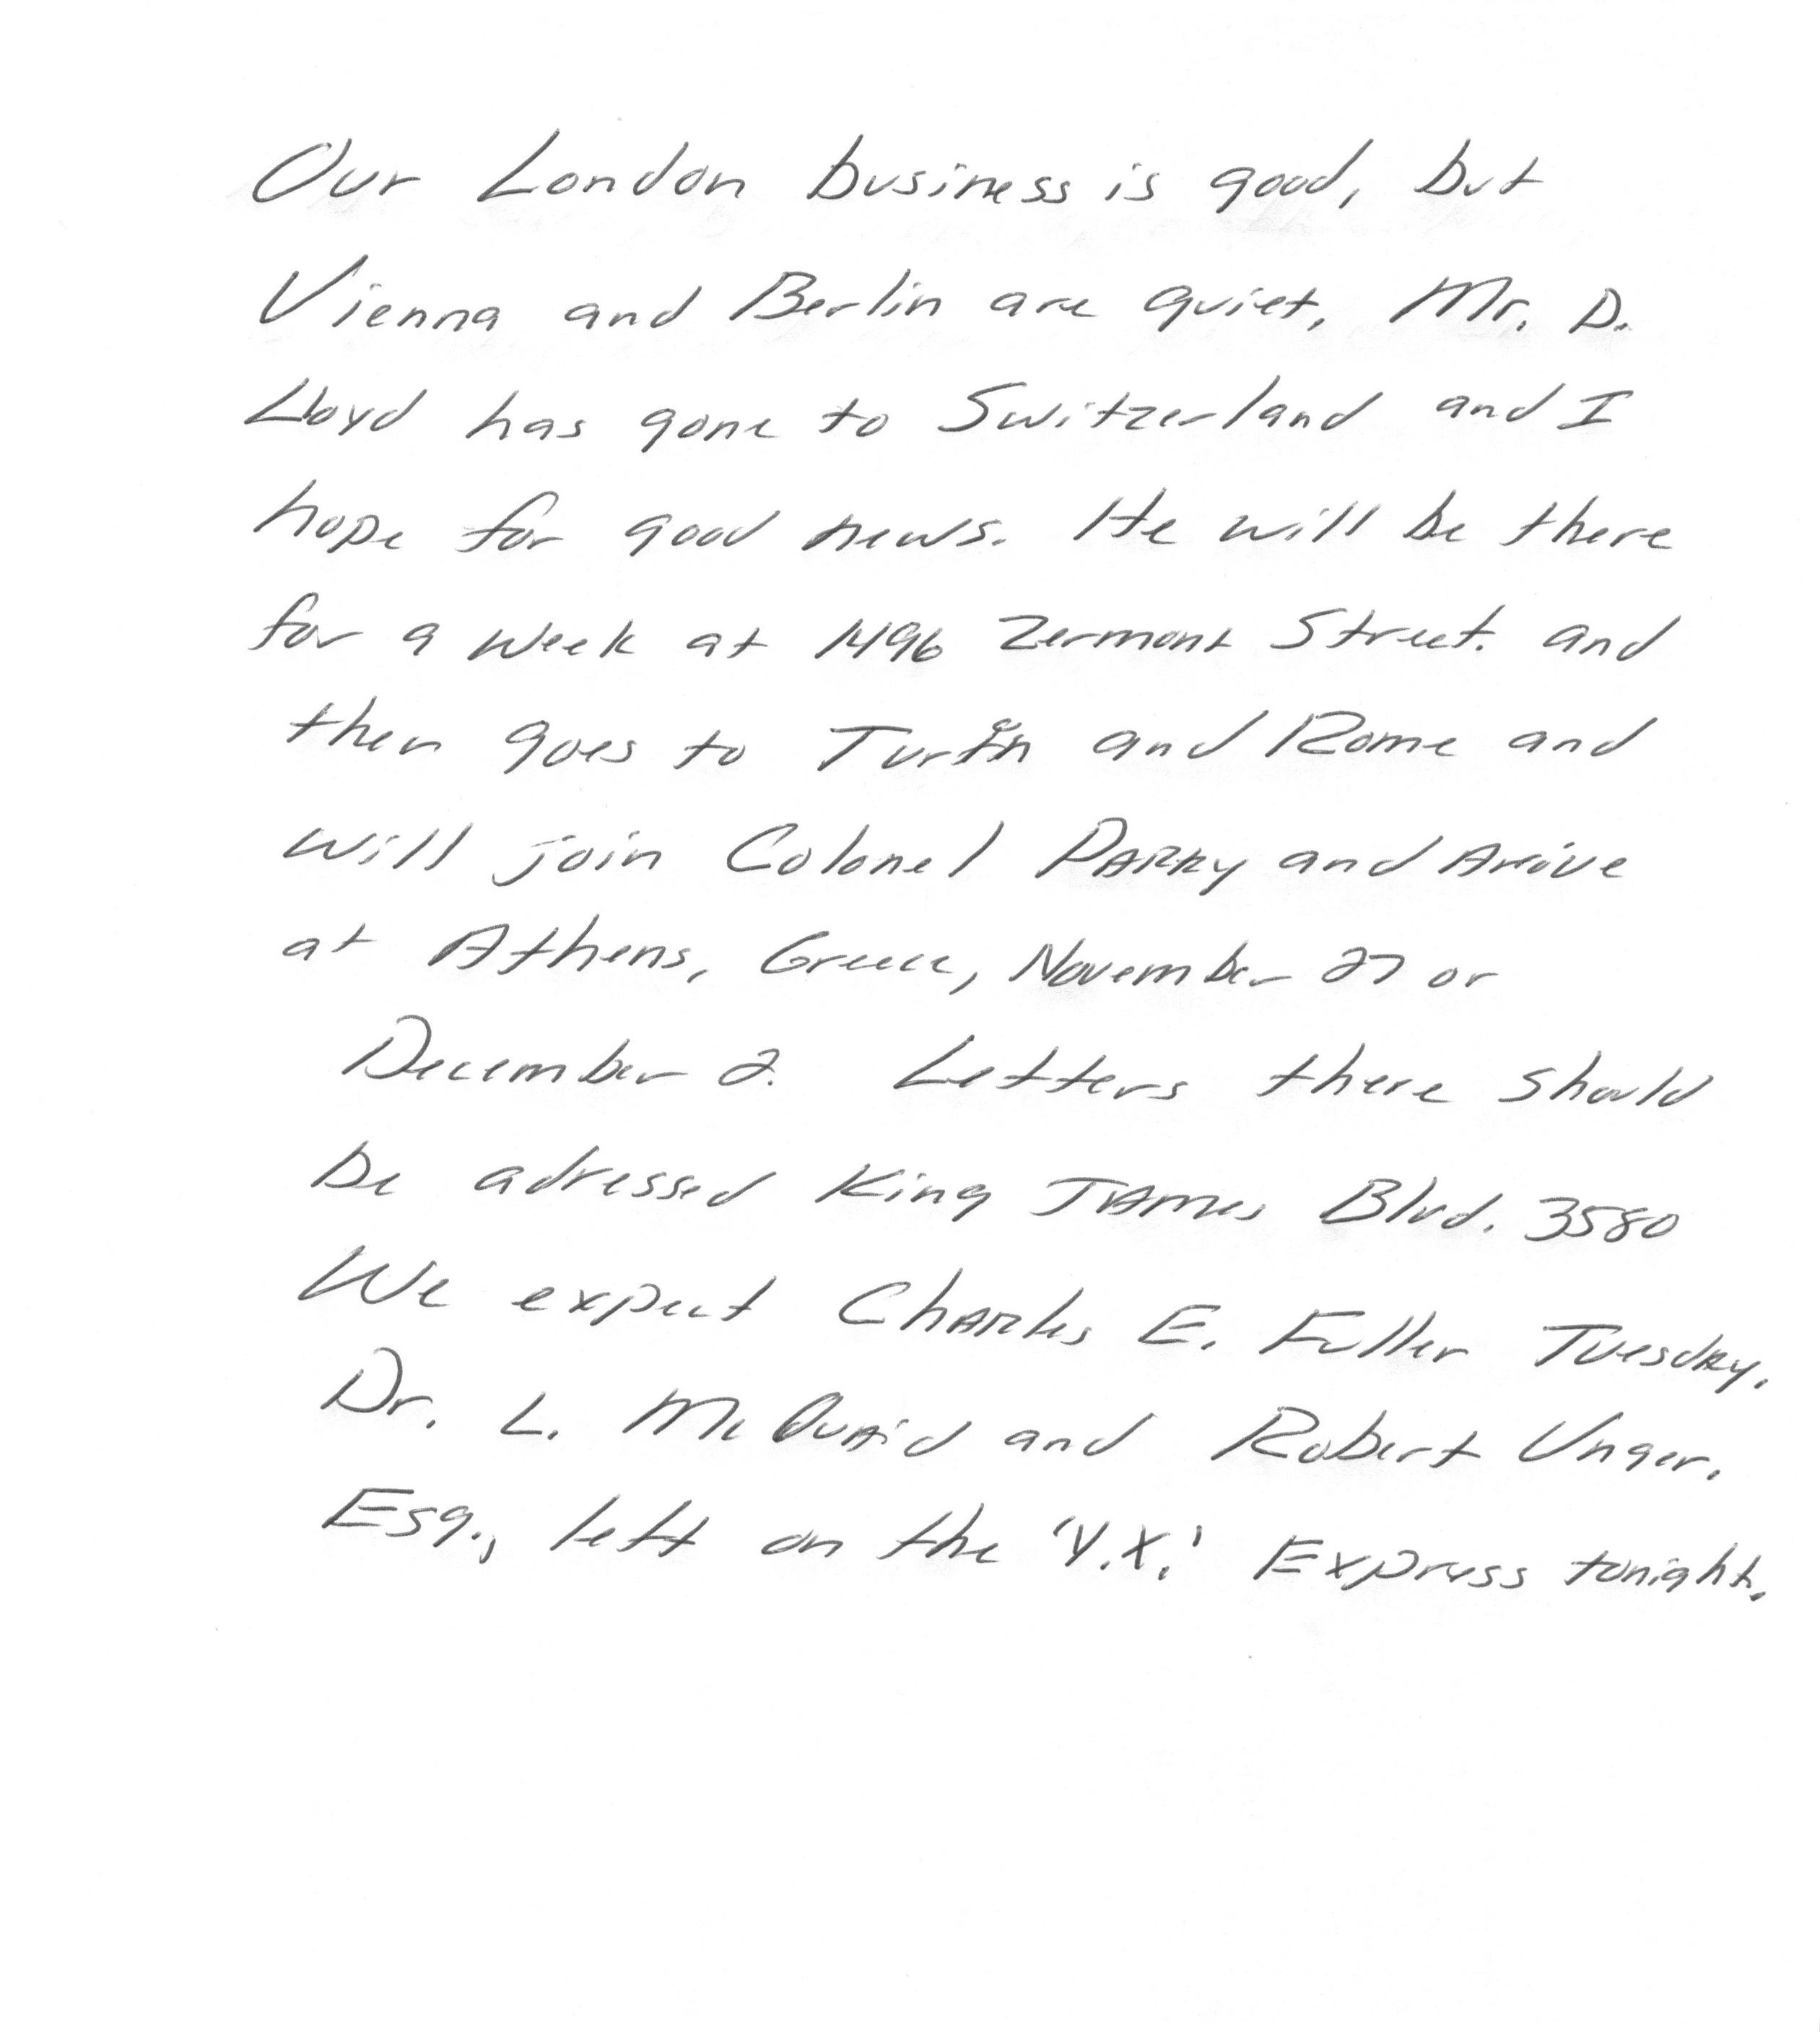 Our London business is good, but
Vienna and Berlin are quiet. Mr. D.
Lloyd has gone to Switzerland and I
hope for good news. He will be there
for a week at 1496 Zermont Street. and
then goes to Turin and Rome and
will join Colonel Parry and Arrive
at Athens, Greece, November 27 or
December 2. Letters there should
be adressed King James Blvd. 3580
We expect Charles E. Fuller Tuesday.
Dr. L. McQuaid and Robert Unger.
Esq., left on the 'Y.X.' Express tonight.